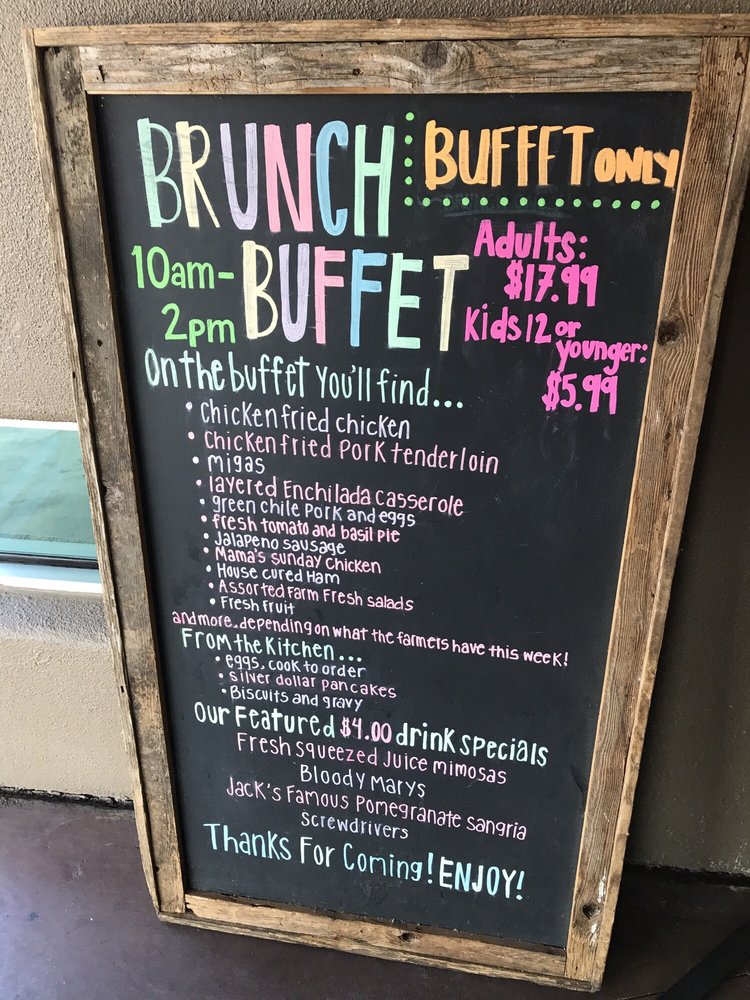 BRUNCH
BUFFET ONLY
10am-
2pm
BUFFET
Adults:
$17.99
Kids 12 or
younger:
$5.99
On the buffet you'll find...
• chicken fried chicken
• chicken fried Pork tenderloin
• migas
• layered Enchilada casserole
• green chile Pork and eggs
• fresh tomato and basil pie
• Jalapeno sausage
• Mama's Sunday Chicken
• House cured Ham
• Assorted Farm Fresh salads
• Fresh fruit
and more..depending on what the farmers have this week!
From the Kitchen...
• eggs, cook to order
• silver dollar pancakes
• Biscuits and gravy
Our Featured $4.00 drink specials
Fresh squeezed Juice mimosas
Bloody Marys
Jack's Famous Pomegranate sangria
Screwdrivers
Thanks For Coming! ENJOY!